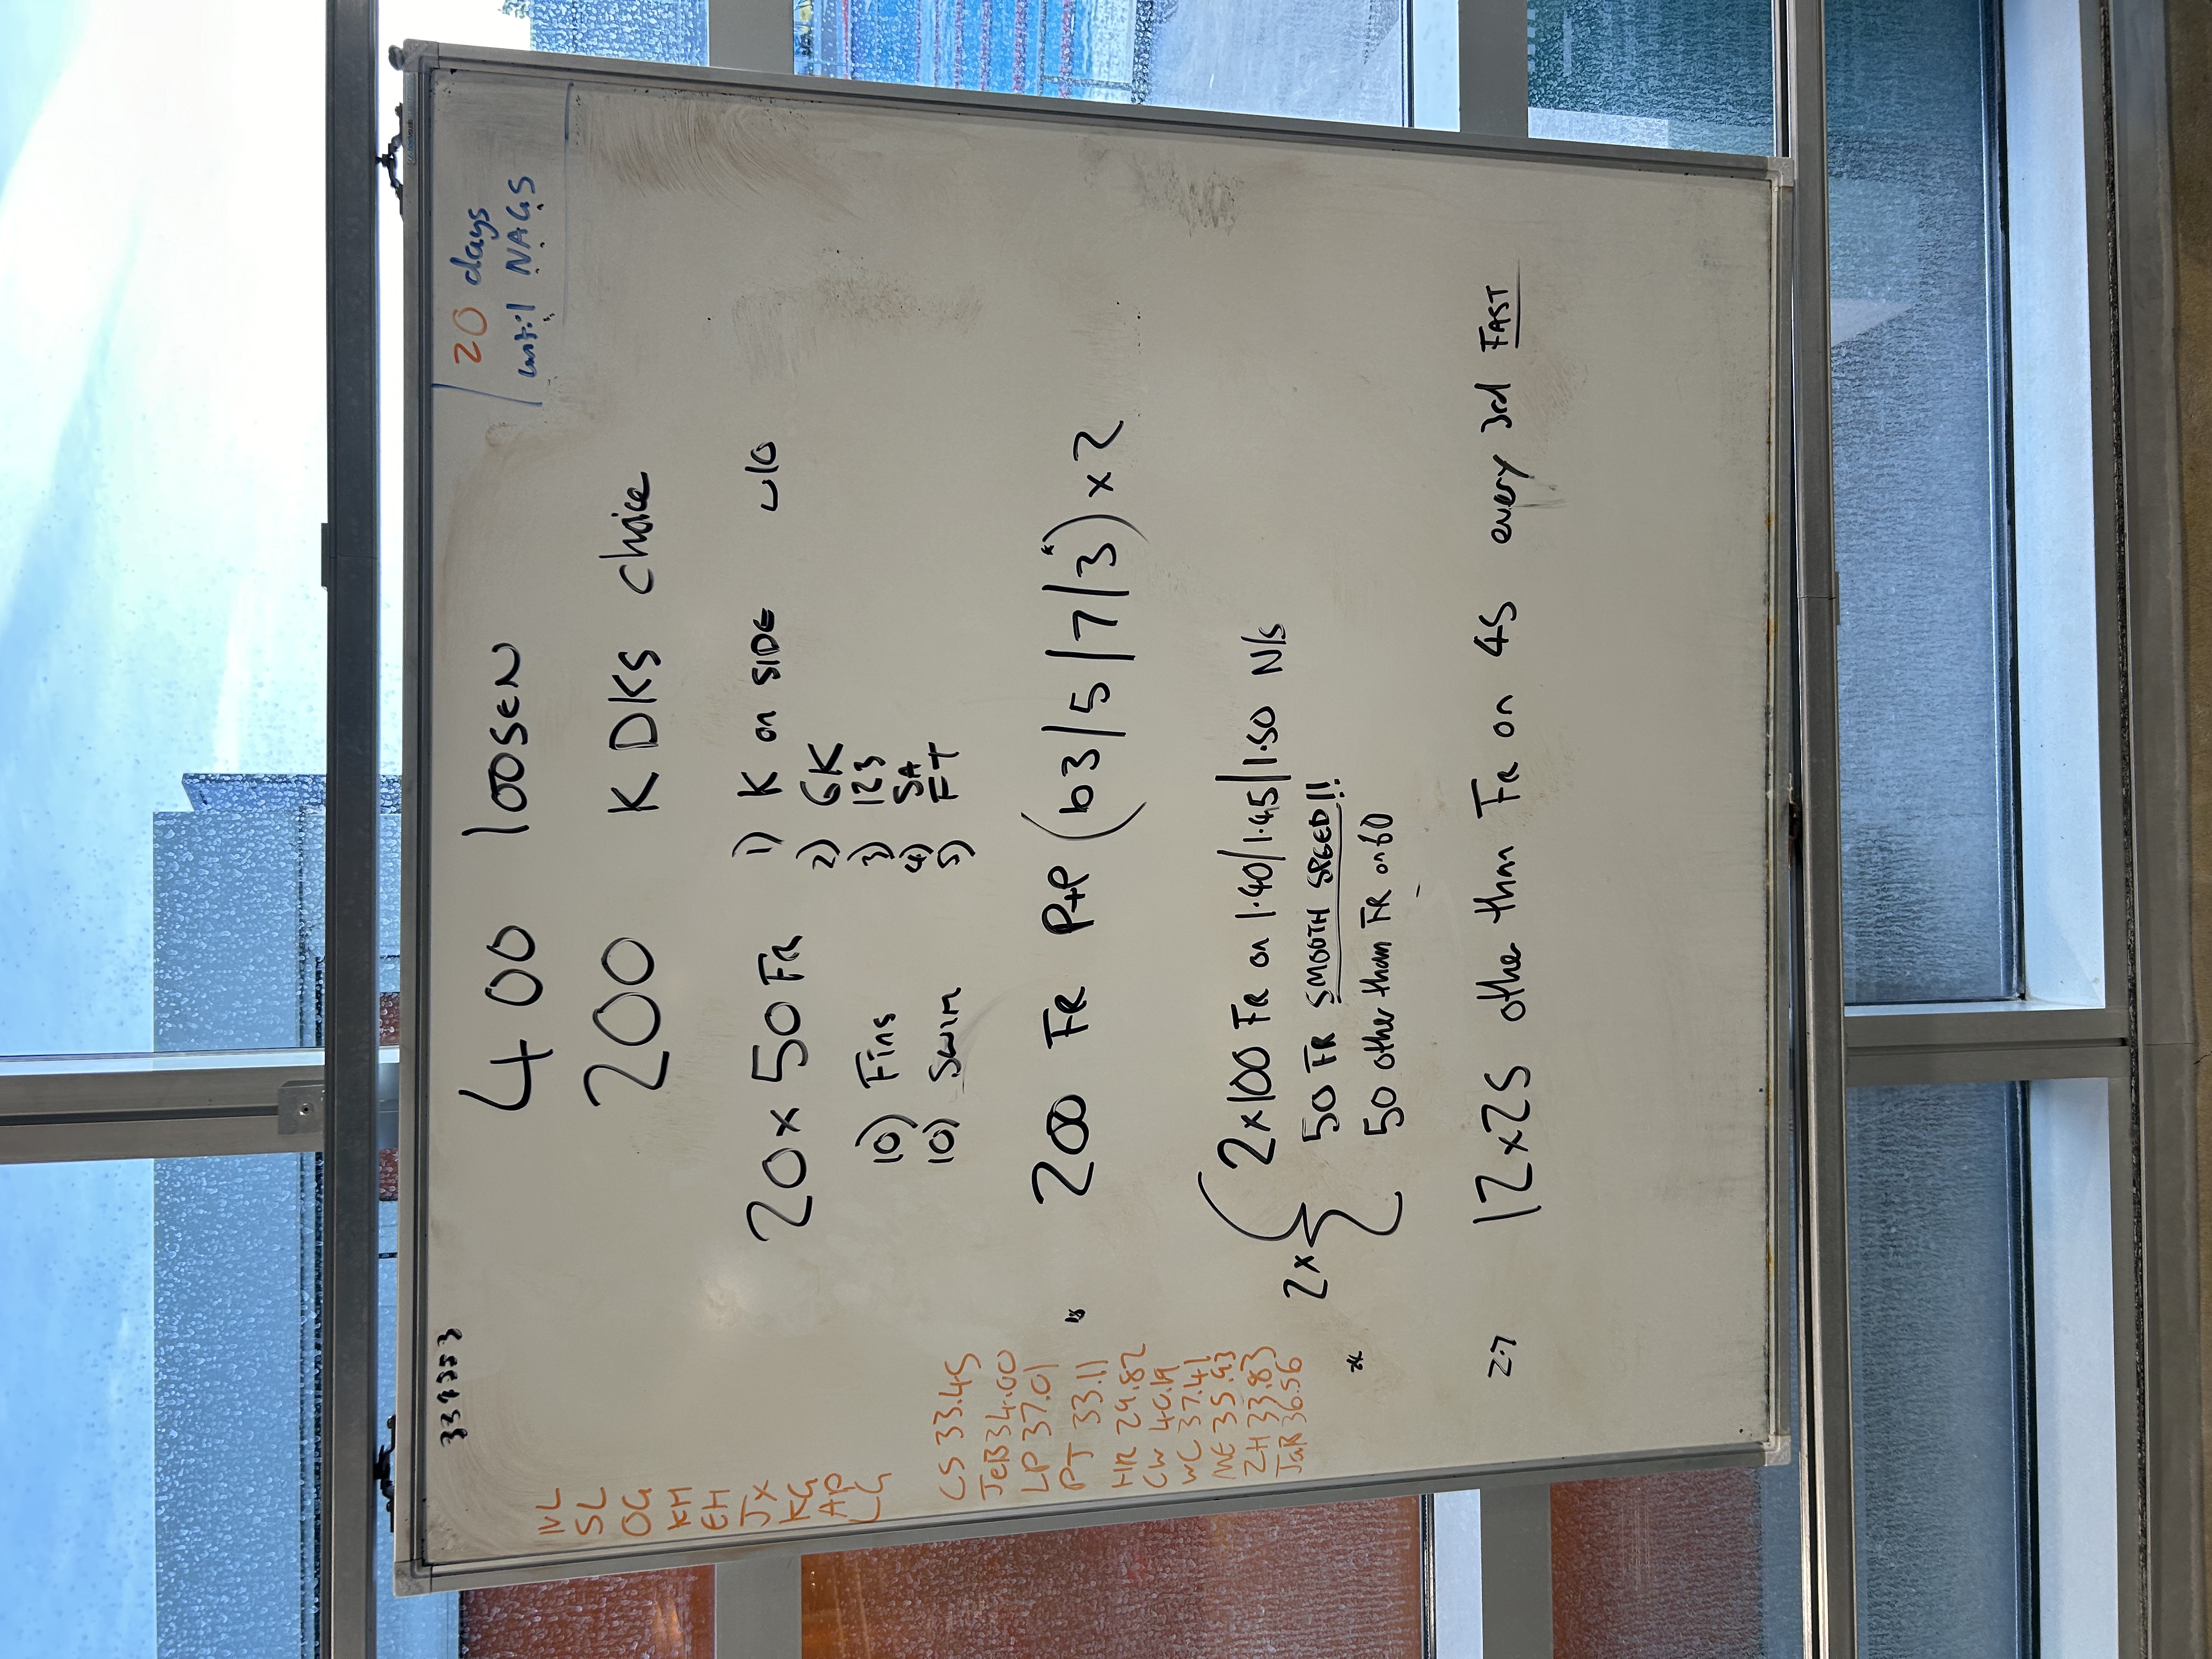 20 days
until NAGS
400 loosen
200 KDKS choice
20x50 FR 1) K on SIDE
2) 6K
10) Fins 3) 123
4) SA
10) Swim 5) FT
200 FR P+P (b3/5/7/3) x2
2x
2x100 FR on 1.40/1.45/1.50 N/S
50 FR SMOOTH SPEED!!
50 other than FR on 60
12x25 other than FR on 45 every 3rd FAST
SL
OG
KM
EH
JX
KG
AP
LG
CS 33.45
JeB 34.00
LP 37.01
PJ 33.11
HR 29.82
CW 40.19
WC 37.41
ME 35.93
ZH 33.83
JaB 36.56